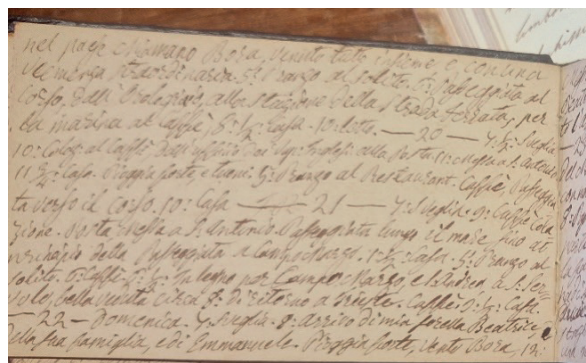 nel paese chiamano Bora, venuto tutto insieme e, continua
veemenza straordinaria. 5: Pranzo al solito. 6: Passeggiata al
Corso. dall'Orologiajo, alla stazione della Strada ferrata, per
la marina al Caffè, 8: ½: Casa. 10: Letto. — 20 — 7: ½: Sveglia
10: Colaz: al Caffè. Dall'ufficio dei alla Posta. a S. Antonio
11 ½: Casa. Pioggia forte, e tuoni. 5: Pranzo al Restaurant. Caffè. Passeggia
ta verso il Corso. 10: Casa — 21 — 7: Sveglia. 9: Caffè, Cola
zione. Posta. Messa a S. Antonio. Passeggiata lungo il mare, fino al
principio della Passeggiata a Campo Marzo. 1: ½: Casa. 5: Pranzo al
solito. 6: Caffè. 6: ½: In legno per Campo Marzo, e S. Andrea, a S. Ser-
volo, bella veduta circa 8: di ritorno a Trieste. Caffè. 9: ½: Casa.
— 22 — Domenica. 7: Sveglia. 8: arrivo di mia sorella Beatrice, e
della sua famiglia, e di Emmanuele. Pioggia forte, vento Bora. 12: